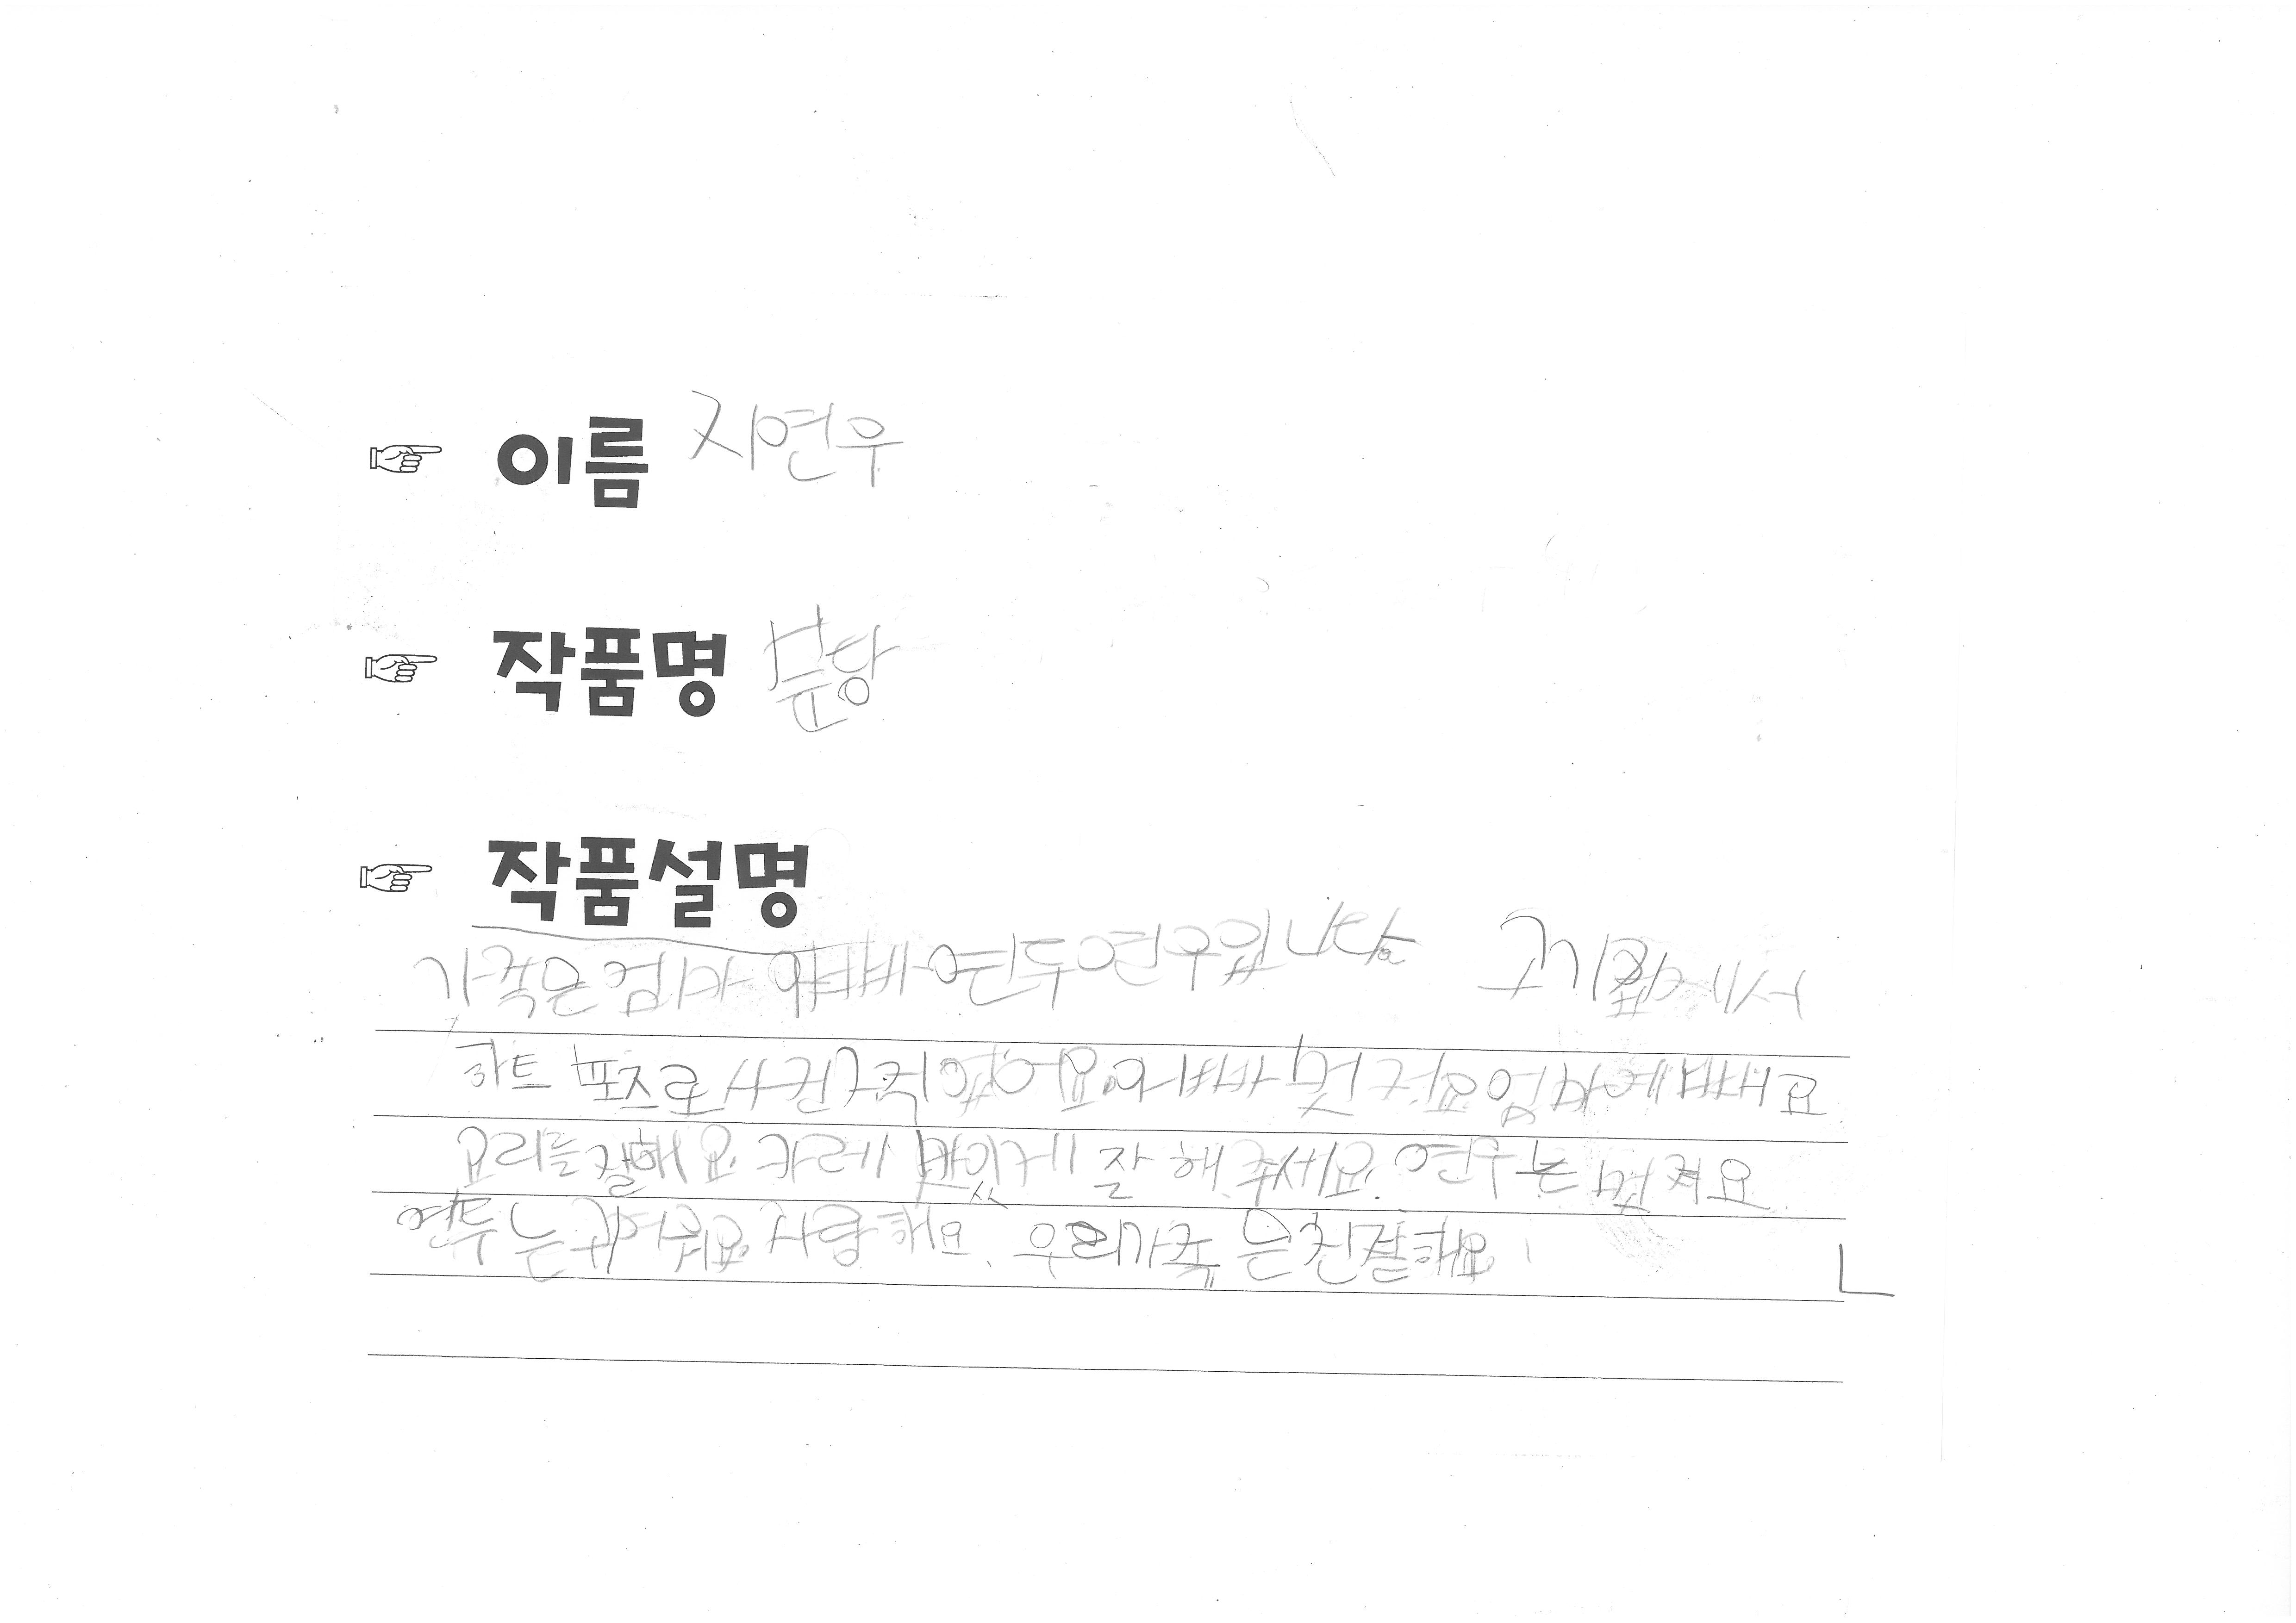 이름 지연우
작품명 분당
작품설명
가족은 엄마 아빠 연두 연우입니다 고기집에서
하트 포즈로 사진 찍었어요. 아빠 멋져요 엄마 예뻐요
요리를 잘해요. 카레 맛있게 잘 해주세요. 연우는 멋져요.
연두는 귀여워요. 사랑해요. 우리가족은 친절해요.